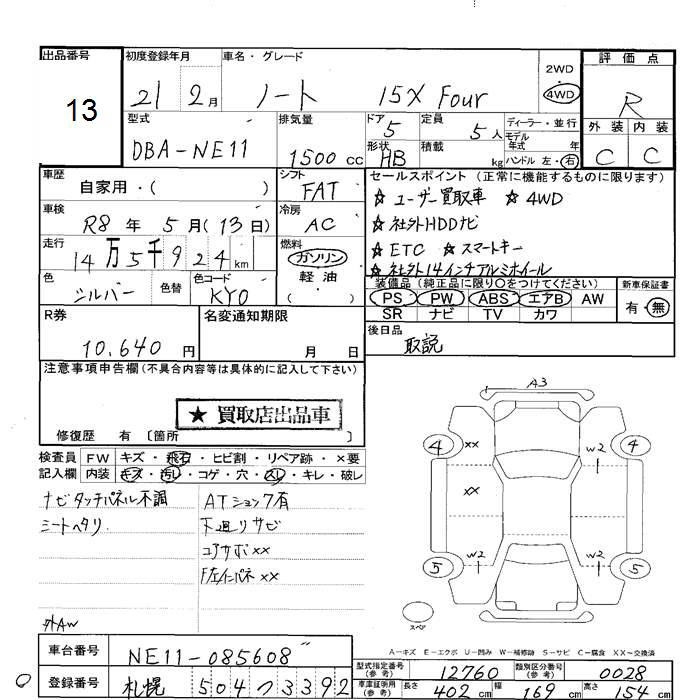 出品番号
13
初度登録年月
21 2月
車名・グレード
ノート 15X Four
2WD
4WD
評価点
R
外装 内装
C C
型式
DBA-NE11
排気量
1500cc
ドア
5
定員
5人
形状
HB
積載
kg
ディーラー・並行
モデル年式 年
ハンドル 左・右
車歴
自家用・( )
シフト
FAT
車検
R8年5月(13日)
冷房
AC
走行
14万5千924km
燃料
ガソリン
軽油
( )
色
シルバー
色替
色コード
KY0
セールスポイント(正常に機能するものに限ります)
☆ユーザー買取車 ☆4WD
☆社外HDDナビ
☆ETC ☆スマートキー
☆社外14インチアルミホイール
装備品(純正品に限り○をつけてください)
PS PW ABS エアB AW
SR ナビ TV カワ
新車保証書
有・無
R券
10,640円
名変通知期限
月 日
後日品
取説
注意事項申告欄(不具合内容等は具体的に記入して下さい)
★買取店出品車
修復歴 有〔箇所 〕
検査員記入欄
FW キズ・飛石・ヒビ割・リペア跡・×要
内装 キズ・汚レ・コゲ・穴・スレ・キレ・破レ
ナビタッチパネル不調
シートヘタリ
外AW
ATショック有
下廻リサビ
コアサポ××
F左インパネ××
A3
4 ×× W2 4
××
5 W2 W2 5
スペア
A-キズ E-エクボ U-凹み W-補修跡 S-サビ C-腐食 XX-交換済
車台番号
NE11-085608
登録番号
札幌 504 ツ 3392
型式指定番号(参考)
12760
類別区分番号(参考)
0028
車庫証明用(参考)
長さ 402cm 幅 169cm 高さ 154cm